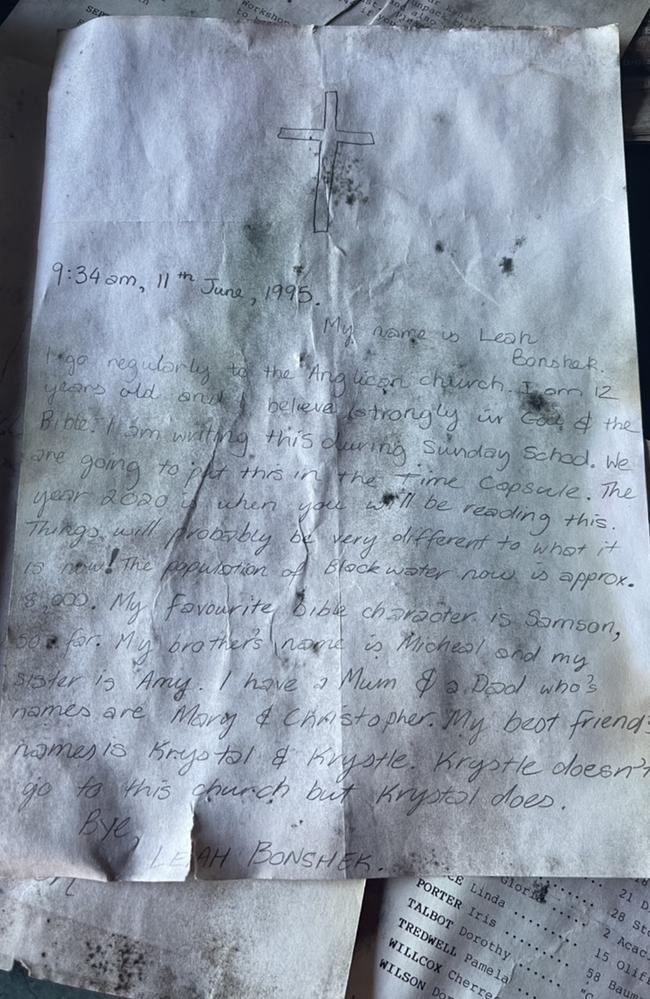 Workshop
9:34am, 11th June, 1995.
My name is Leah
Bonshek.
I go regularly to the Anglican church. I am 12
years old and I believe strongly in God & the
Bible. I am writing this during Sunday School. We
are going to put this in the Time Capsule. The
year 2020 is when you will be reading this.
Things will probably be very different to what it
is now! The population of Blackwater now is approx.
8,000. My favourite bible character is Samson,
so far. My brother's name is Micheal and my
sister is Amy. I have a Mum & a Dad who's
names are Mary & Christopher. My best friend's
names is Krystal & Krystle. Krystle doesn't
go to this church but Krystal does.
Bye,
LEAH BONSHEK.
Gloria
Linda 21 D
PORTER Iris 28 Sto
TALBOT Dorothy 2 Acac
TREDWELL Pamela 15 Olif
WILLCOX Cherre 58 Baum
WILSON Do